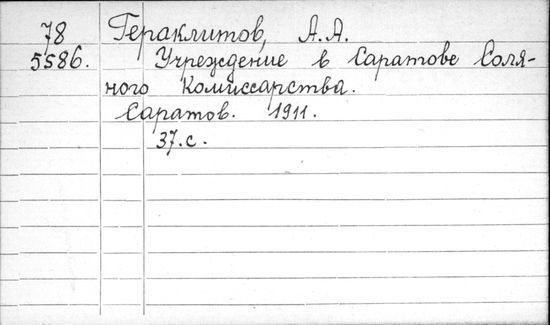 78 Гераклитов, А.А.
5586. Учреждение в Саратове Соля-
ного Комиссарства.
Саратов. 1911.
37.с.